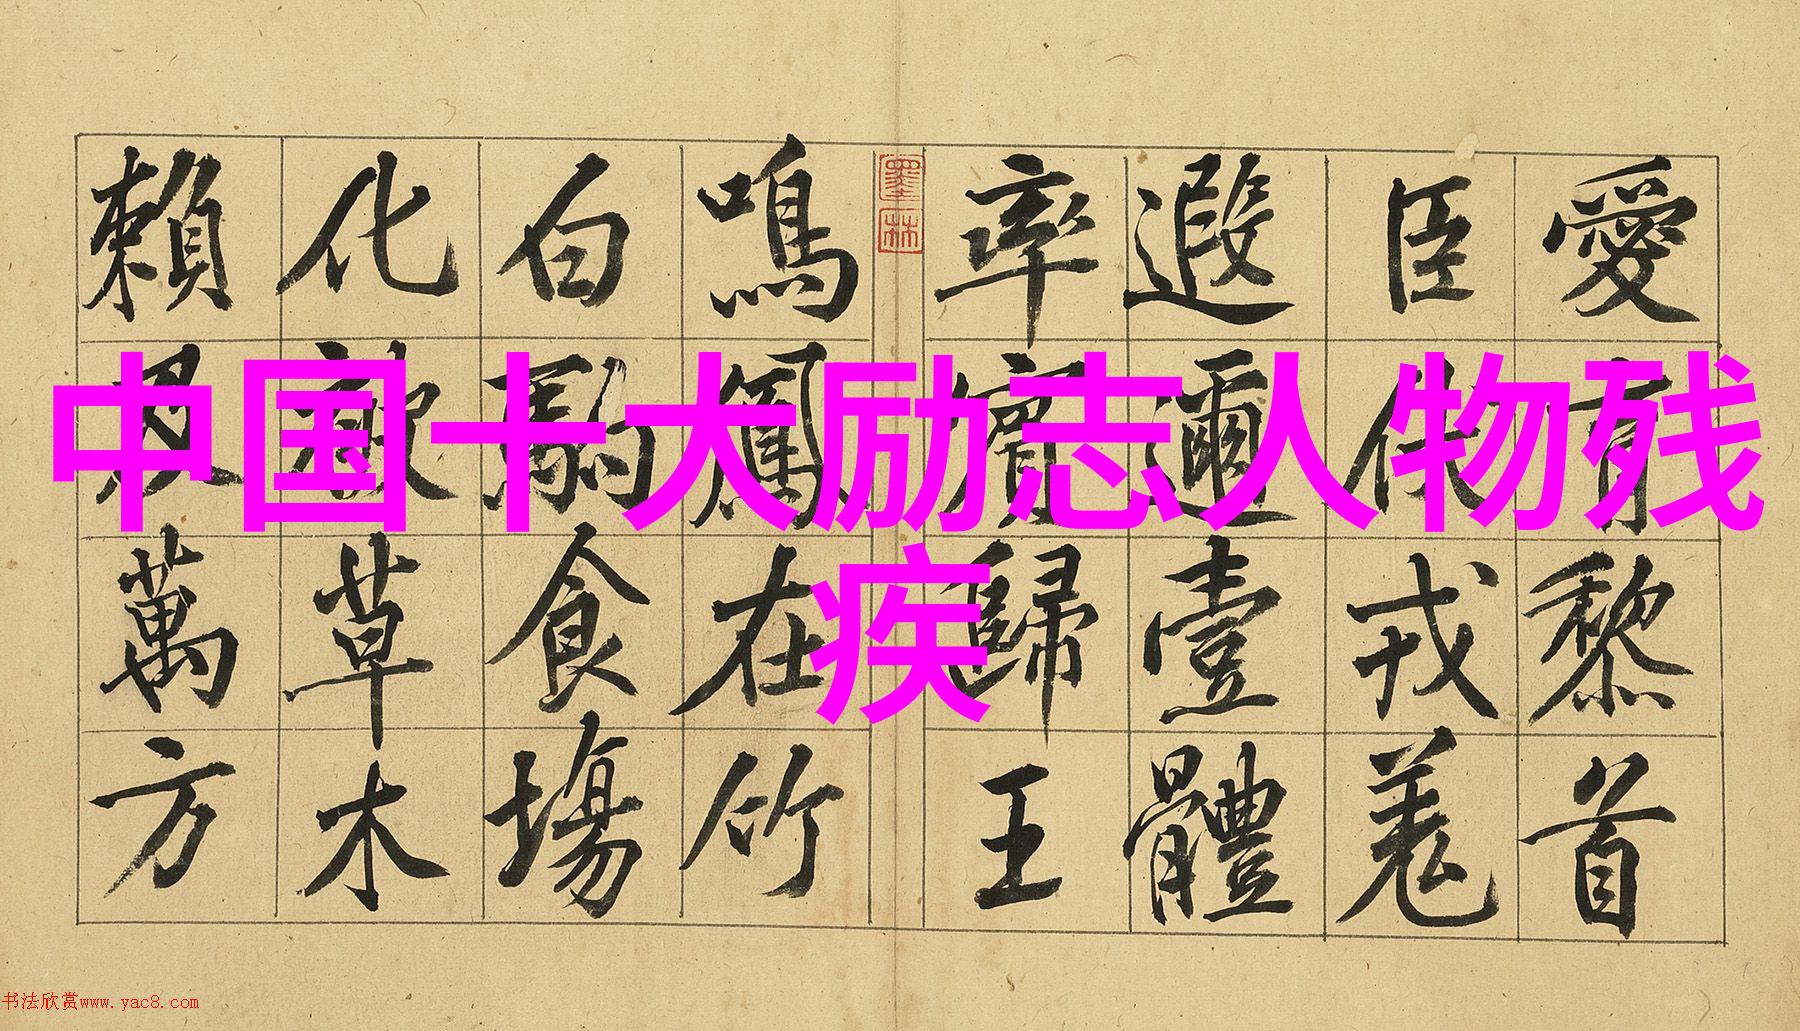 中国十大励志人物残
疾
愛育黎首
臣伏戎羌
遐邇壹體
率賓歸王
墨林
鳴鳳在竹
白駒食場
化被草木
賴及萬方
书法欣赏www.yac8.com